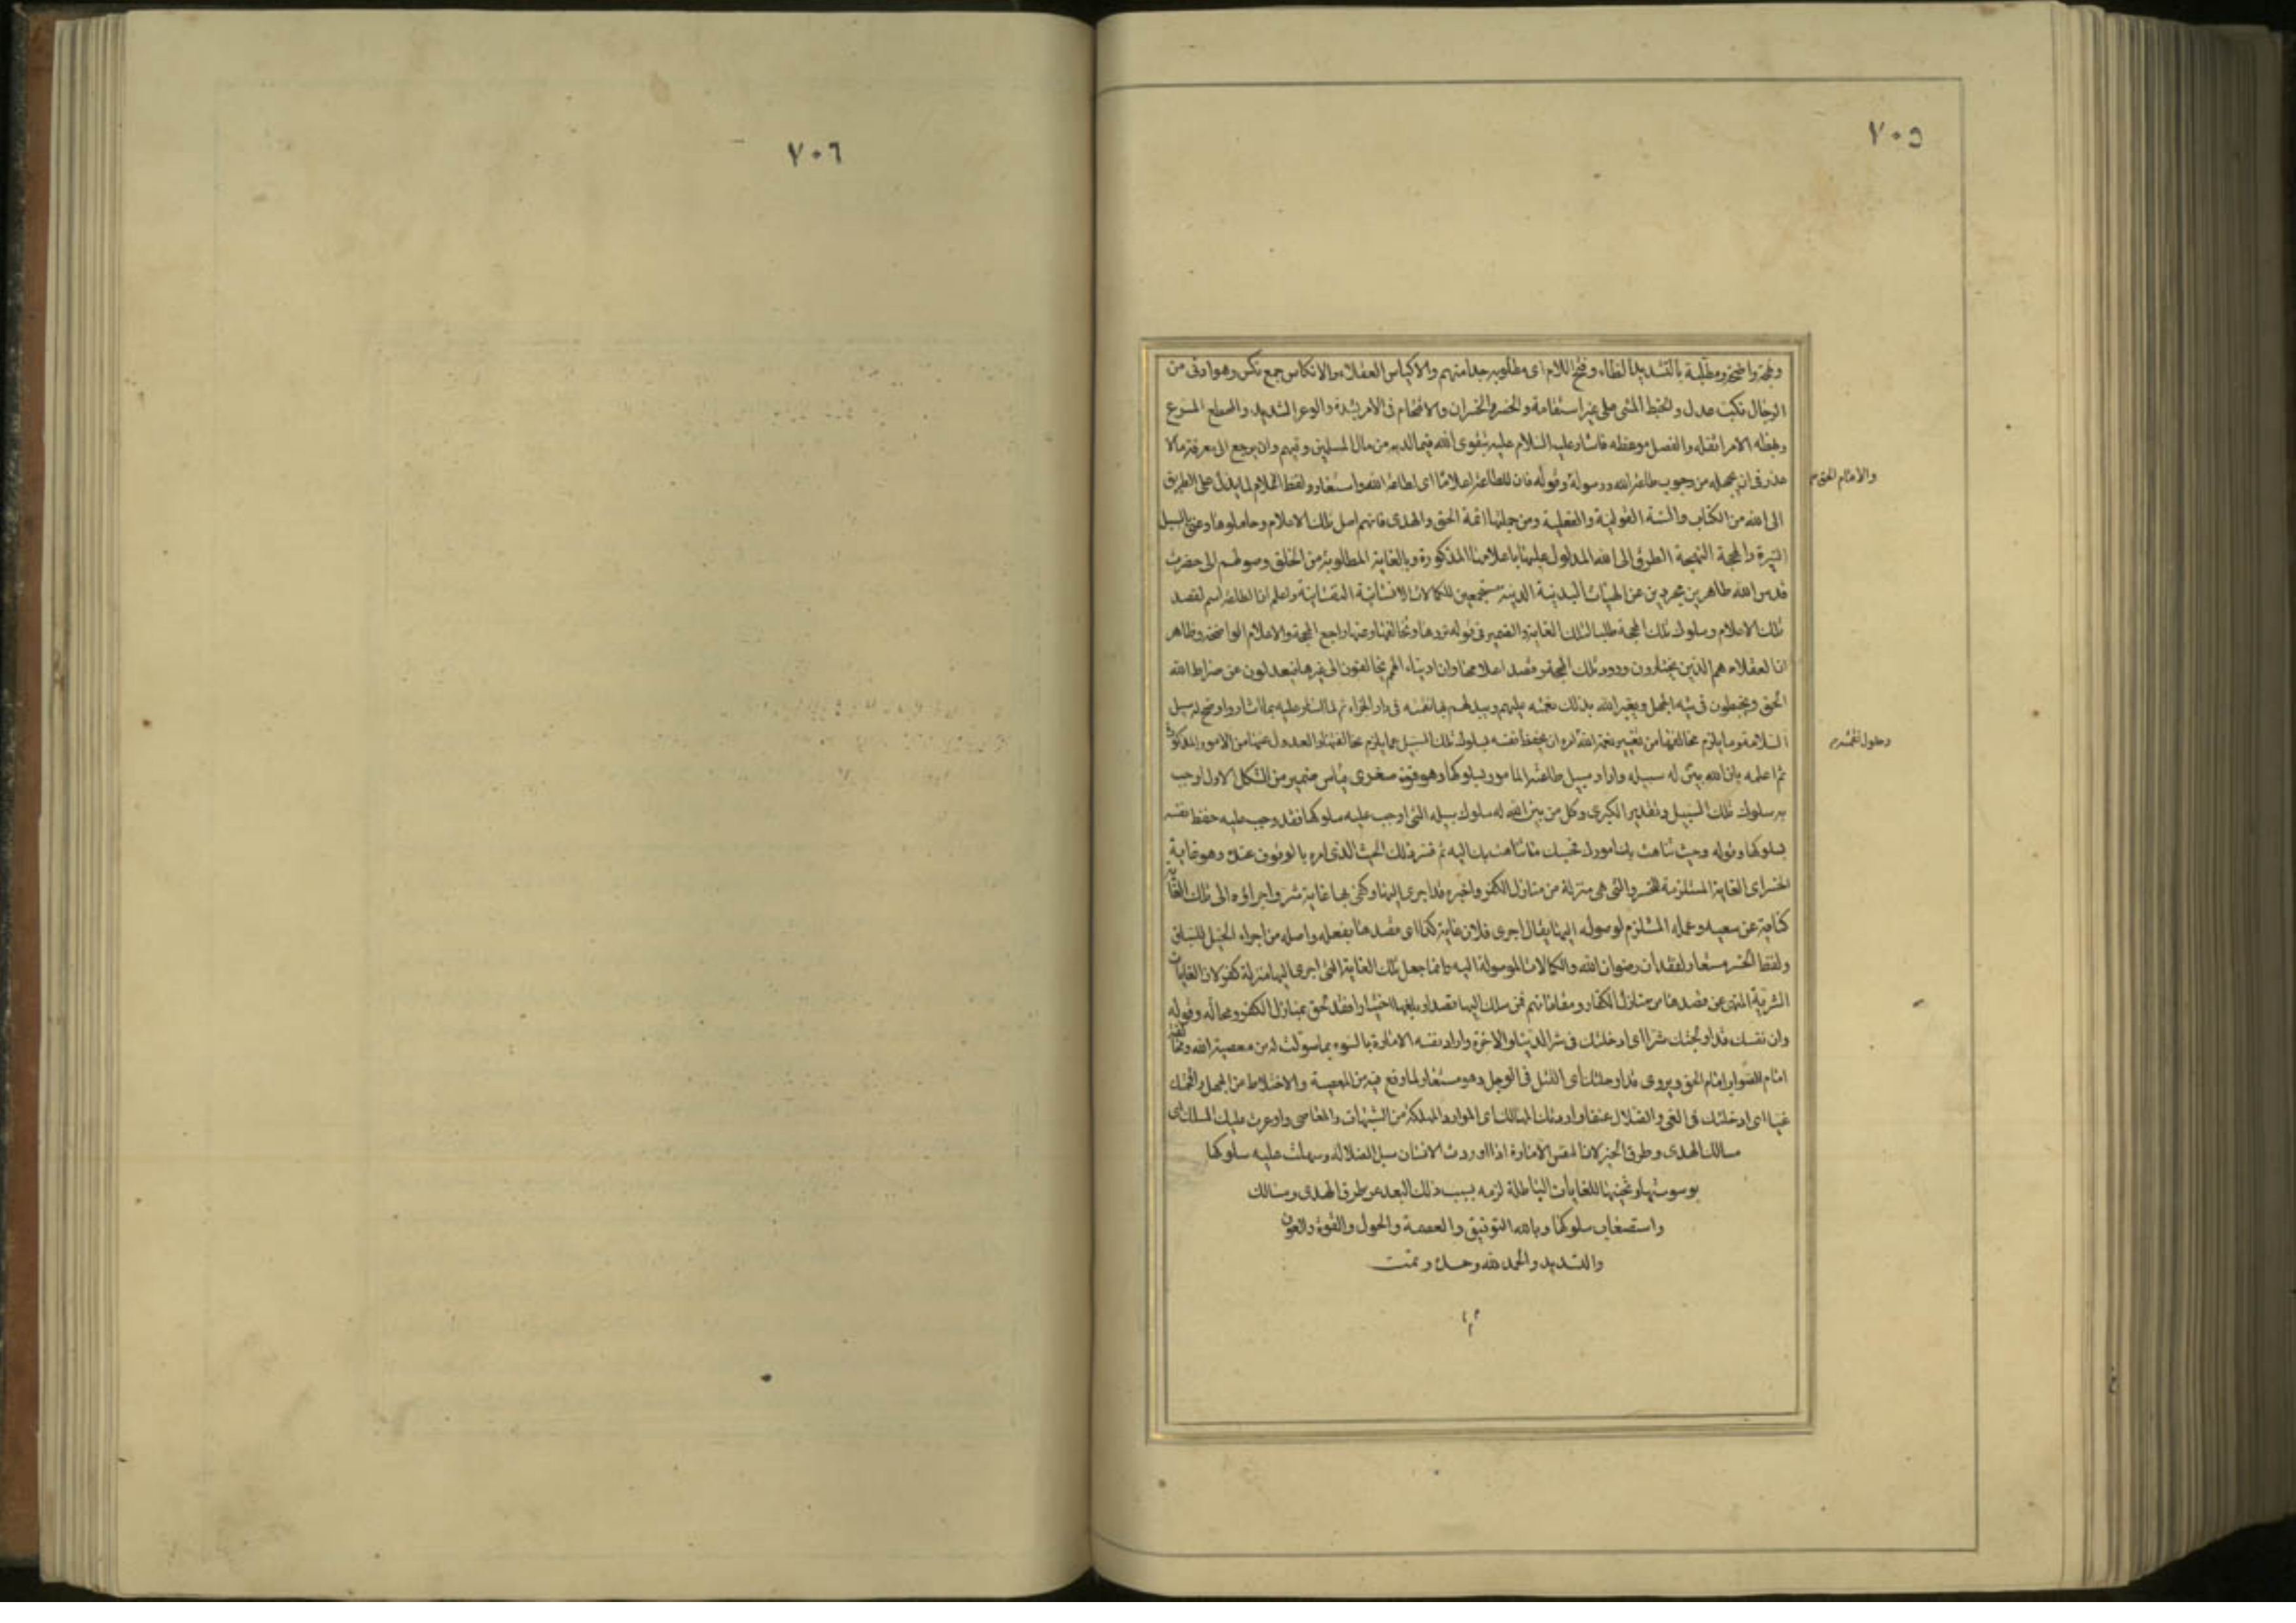 ٧٠٥
ونهجة واضحة ومطلبة بالتشديد الطاء وفتح اللام اى مطلوبة جدا منهم والاكياس العقلاء والانكاس جمع نكس وهو الدنى من
الرجال ونكب عدل والخبط المشى على غير استقامة والخسر الخسران والاقحام فى الامر بشدة والوعر الشديد
وبهظه الامر اثقله والفصل موعظه فاشار عليه السلام عليه بتقوى الله فيما لديه من مال المسلمين وفيهم وان يرجع الى معرفة ما لا
عذر فى ان يجهله من وجوب طاعة الله ورسوله وقوله فان للطاعة اعلاما اى لطاعة الله واستعار ولفظ الاعلام لما يدل على الطريق
والاقتحام
الى الله من الكتاب والسنة القولية والفعلية ومن جملتها ائمة الحق والهدى فانهم اصل تلك الاعلام وحاملوها وعنى بالسبل
النيرة والمحجة النهجة الطرق الى الله المدلول عليها باعلامها المذكورة وبالغاية المطلوبة من الخلق وصولهم الى حضرت
قدس الله طاهرين مجردين عن الهيئات البدنية الدنية مستجمعين للكمالات الانسانية النفسانية واعلم ان الطاعة اسم لقصد
تلك الاعلام وسلوك تلك المحجة طلبا لتلك الغاية والضمير فى قوله تردها وتخالفها وعنها راجع المحجة والاعلام الواضحة وظاهر
ان العقلاء هم الذين يختارون ورود تلك المحجة وقصد اعلامها وان ادنياء الهمم يخالفون الى غيرها فيعدلون عن صراط الله
الحق ويخبطون فى تيه الجهل ويغير الله بذلك نعمته عليهم ويبدلهم بها نقمته فى دار الجزاء ثم لما اشار عليه بما اشار واوضح له سبيل
السلامة وما يلزم مخالفتها من تغيير نعمة الله امره ان يحفظ نفسه بسلوك تلك السبيل عما يلزم مخالفتها والعدول عنها من الامور المذكورة
وحلول نقمته
ثم اعلمه بان الله بين له سبيله واراد سبيل طاعته المامور بسلوكها وهو قوة صغرى قياس ضمير من الشكل الاول اوجب
به سلوك تلك السبيل وتقدير الكبرى وكل من بين الله له سلوك سبيله التى اوجب عليه سلوكها فقد وجب عليه حفظ نفسه
بسلوكها وقوله وحيث تناهت بك امورك حسبك ما تناهت بك اليه ثم فسر ذلك الحيث الذى امره بالوقوف عنده وهو غاية
الخسر اى الغاية المستلزمة للخسر والتى هى منزلة من منازل الكفر واخبره قد اجرى اليها وكفى بها غاية شر واجراؤه الى تلك الغاية
كناية عن سعيه وعمله المستلزم لوصوله اليها يقال اجرى فلان غاية كذا اى قصدها بفعله واصله من اجراء الخيل للسباق
ولفظ الخسر مستعار لفقدان رضوان الله والكمالات الموصولة اليه وانما جعل تلك الغاية التى اجرى اليها منزلة كفر لان الغايات
الشرية المنهى عن قصدها من منازل الكفار ومقاماتهم فمن سلك اليها قصدا وبلغها اختيارا فقد لحق بمنازل الكفر ومحاله وقوله
وان نفسك قد اولجتك شرا اى ادخلتك فى شر الدنيا والاخرة واراد نفسه الامارة بالسوء بما سولت له من معصية الله ومخالفة
امام الحق ويروى قد اوحلتك اى القتك فى الوحل وهو مستعار لما وقع فيه من المعصية والاختلاط من الجهل واقحمتك
غيا اى ادخلتك فى الغى والضلال عنفا واوردتك المهالك اى الموارد المهلكة من الشبهات والمعاصى واوعرت عليك المسالك اى
مسالك الهدى وطرق الخير لان النفس الامارة اذا اوردت الانسان سبل الضلالة وسهلت عليه سلوكها
بوسوستها وتحسينها للغايات الباطلة لزمه بسبب ذلك البعد عن طرق الهدى ومسالك
واستصعاب سلوكها وبالله التوفيق والعصمة والحول والقوة والعون
والتسديد والحمد لله وحده وتمت
م م م
٧٠٦